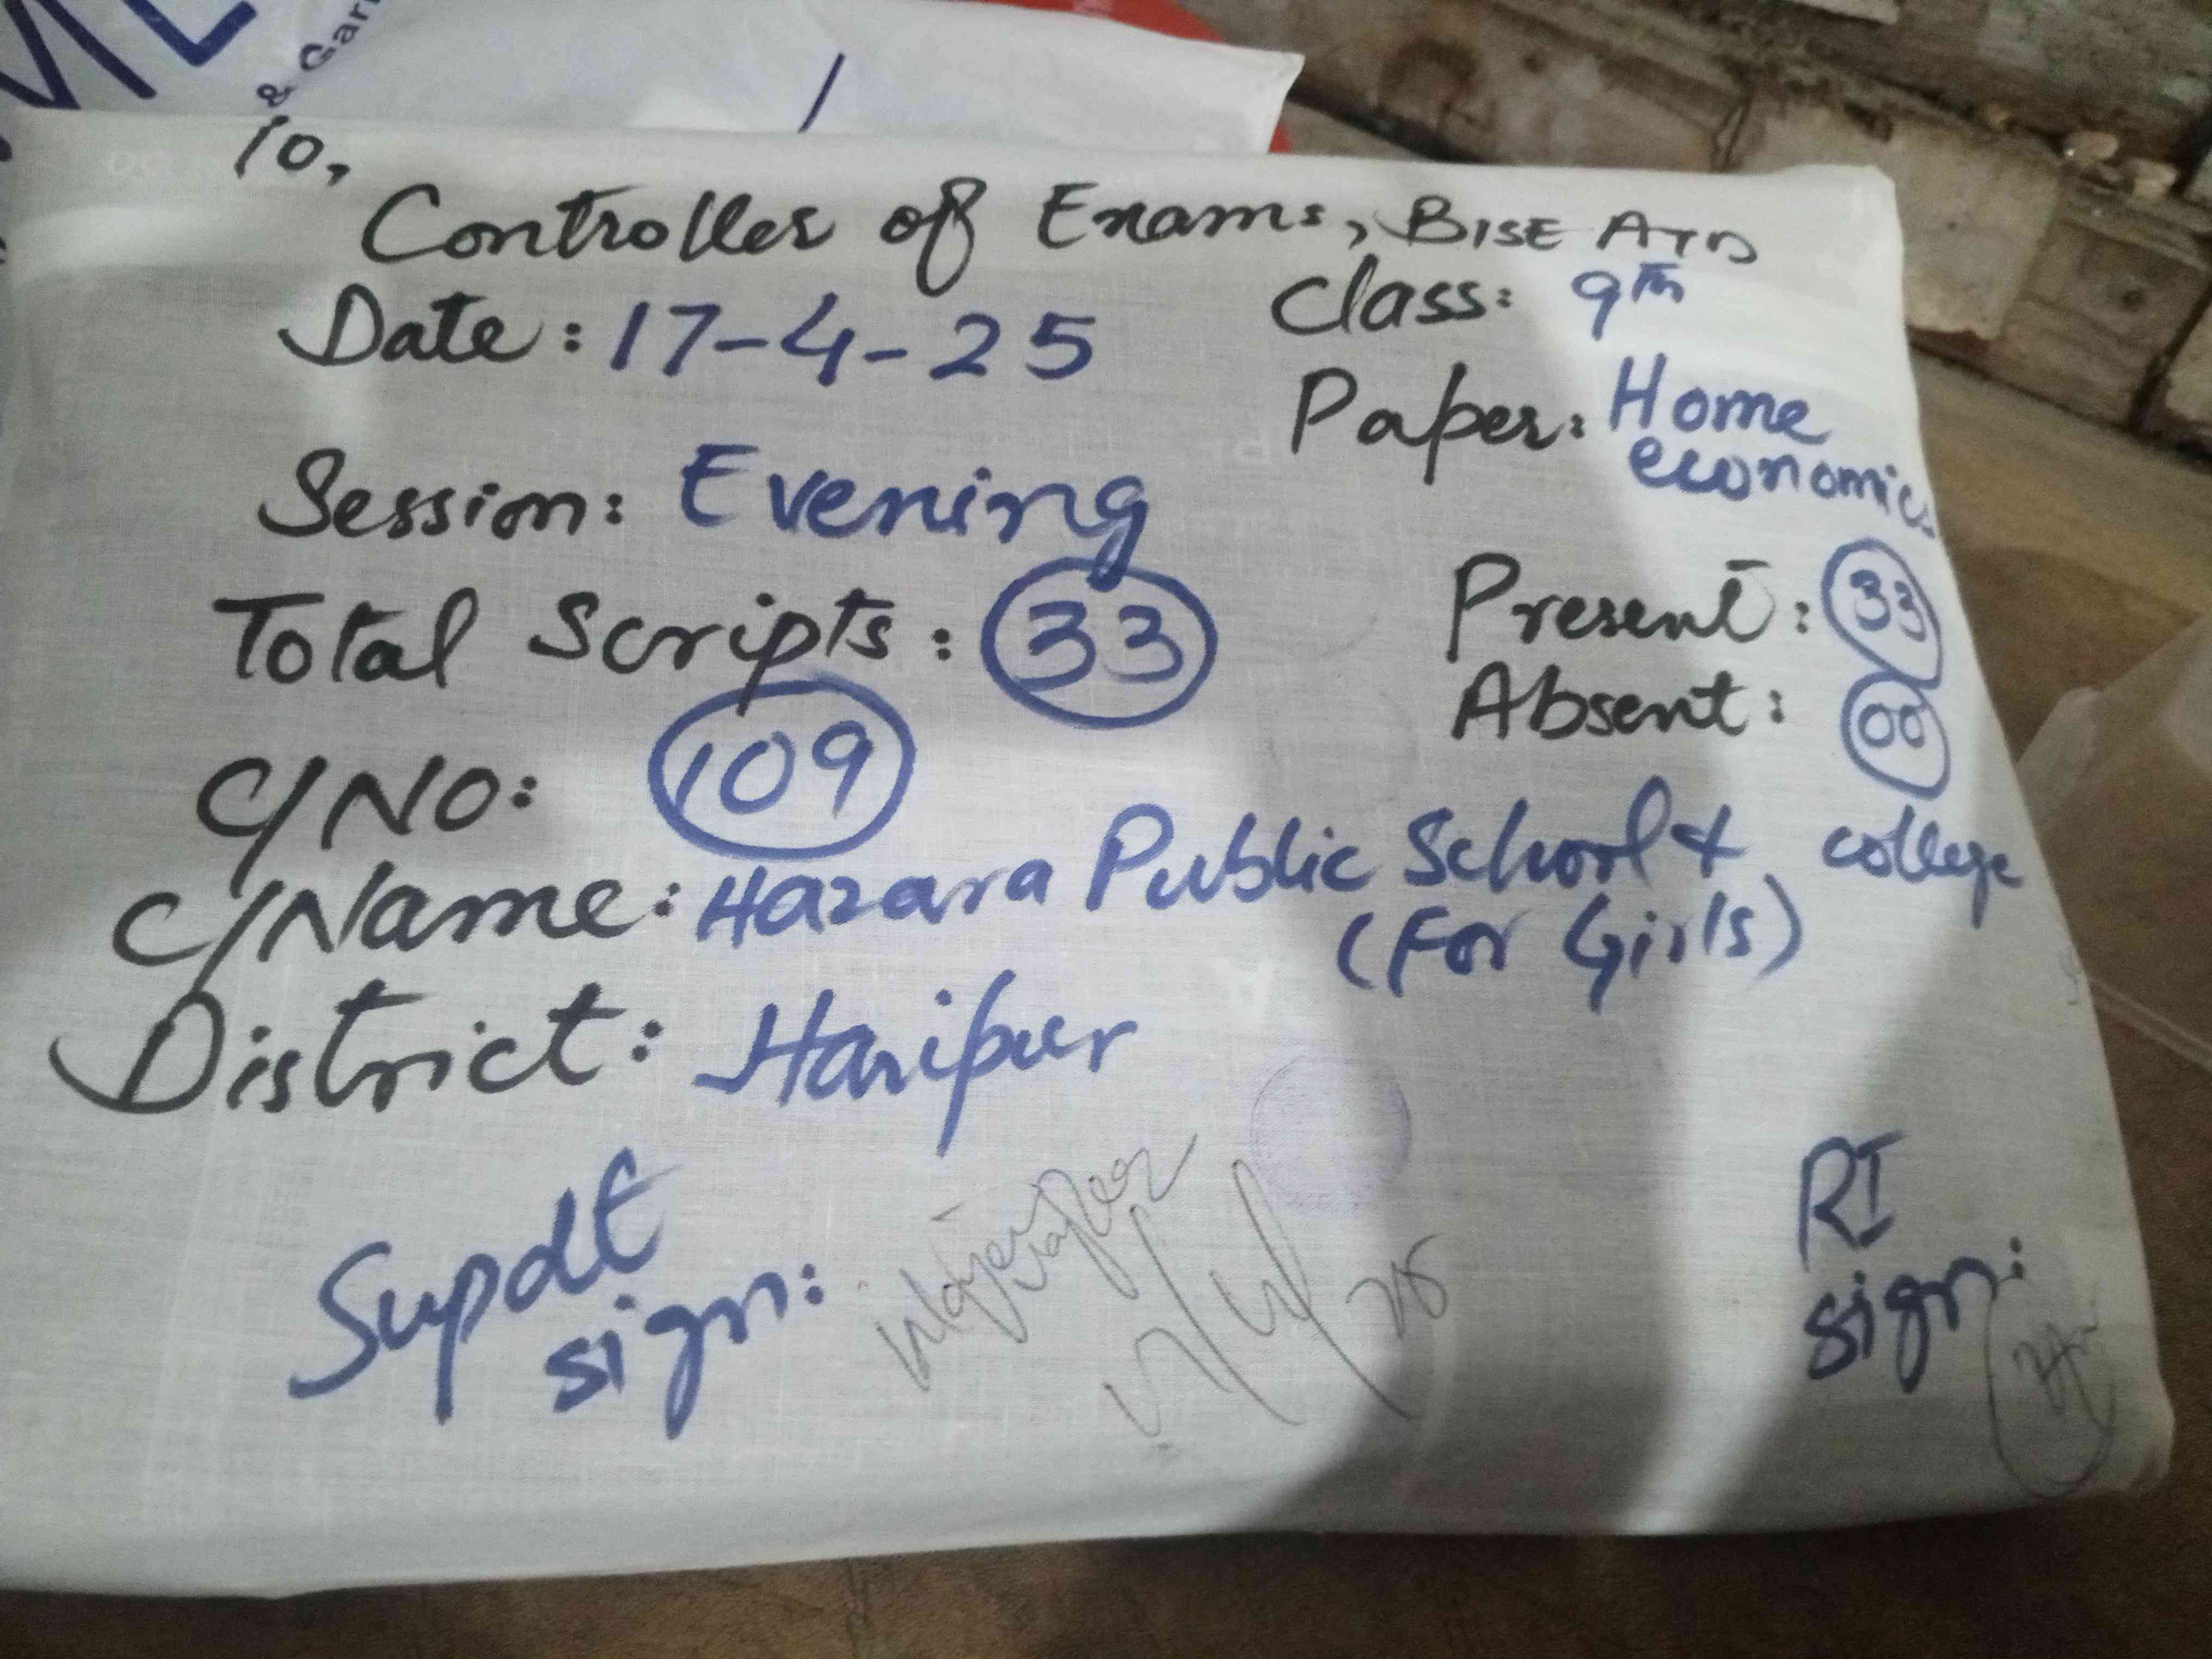 & Gar
To,
Controller of Exams, BISE ATD
Date: 17-4-25
Class: 9th
Paper: Home
economics
Session: Evening
Total Scripts: 33
Present: 33
Absent: 00
C/NO: 109
C/Name: Hazara Public School & college
(For Girls)
District: Haripur
Supdt
sign:
17/4/25
RI
sign: